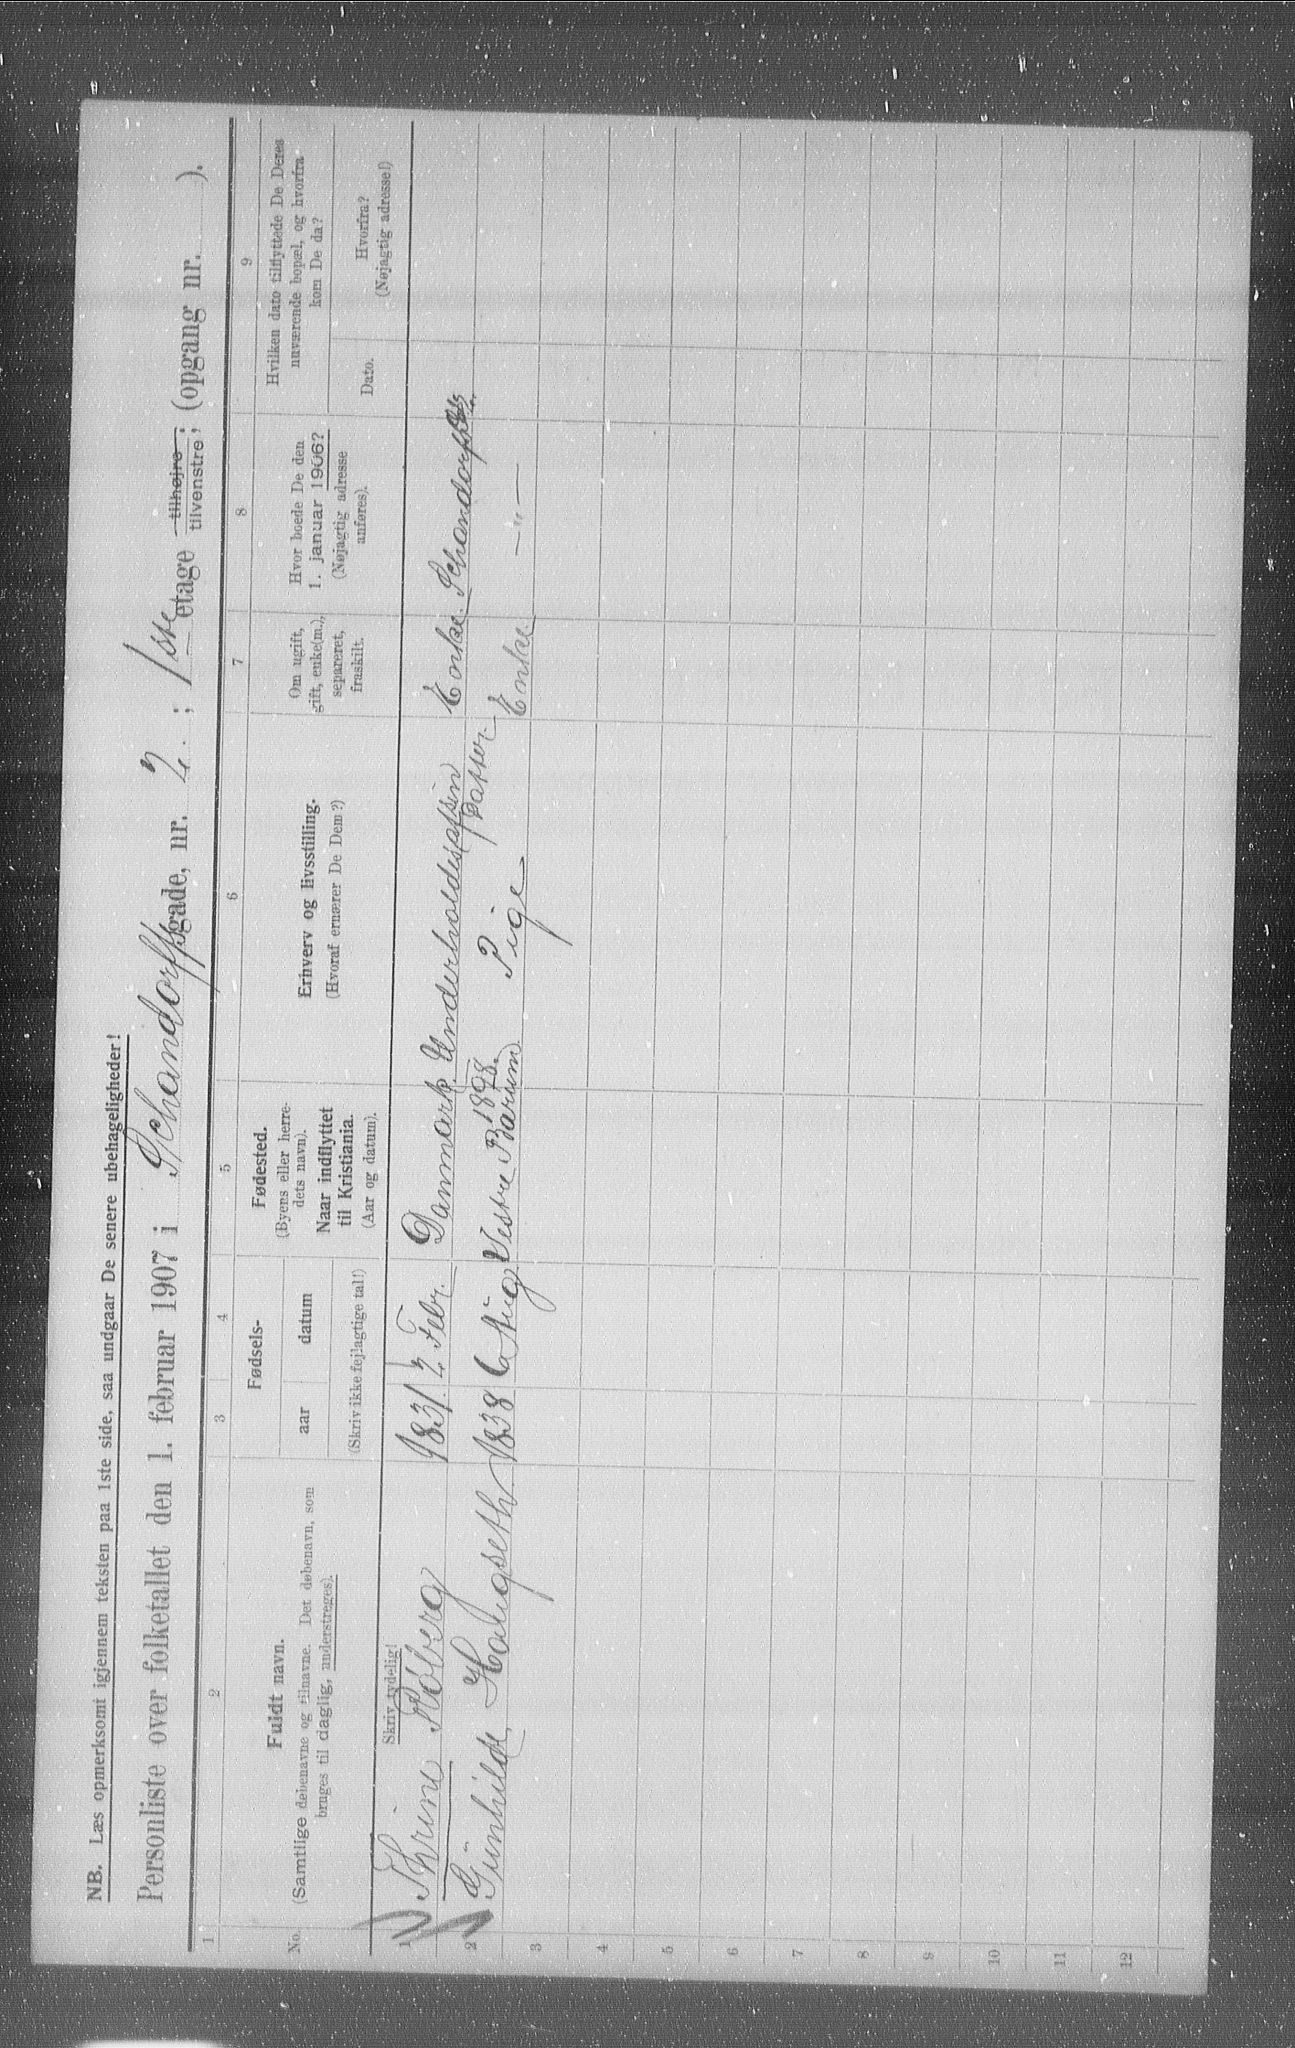 NB. Læs opmerksomt igjennem teksten paa 1ste side, saa undgaar De senere ubehageligheder!
Personliste over folketallet den 1. februar 1907 i Schandorffsgade, nr. 2. ; 1ste etage tilhøjre, tilvenstre, (opgang nr. ).
1 2 3 4 5 6 7 8 9
No.
Fuldt navn.
(Samtlige døbenavne og tilnavne. Det døbenavn, som
bruges til daglig, understreges).
Fødsels-
aar datum
(Skriv ikke fejlagtige tal!)
Fødested.
(Byens eller herre-
dets navn).
Naar indflyttet
til Kristiania.
(Aar og datum).
Erhverv og livsstilling.
(Hvoraf ernærer De Dem?)
Om ugift,
gift, enke(m.),
separeret,
fraskilt.
Hvor boede De den
1. januar 1906?
(Nøjagtig adresse
anføres).
Hvilken dato tilflyttede De Deres
nuværende bopæl, og hvorfra
kom De da?
Dato.
Hvorfra?
(Nøjagtig adresse!)
Skriv tydelig!
1 Thrine Roberg 1831. 2. Febr. Danmark. Underholdes af sin Enke. Schandorffs
1898. Datter
2 Gunhilde 1838 6 Aug. Vestre Barum Pige Enke — " —
3
4
5
6
7
8
9
10
11
12